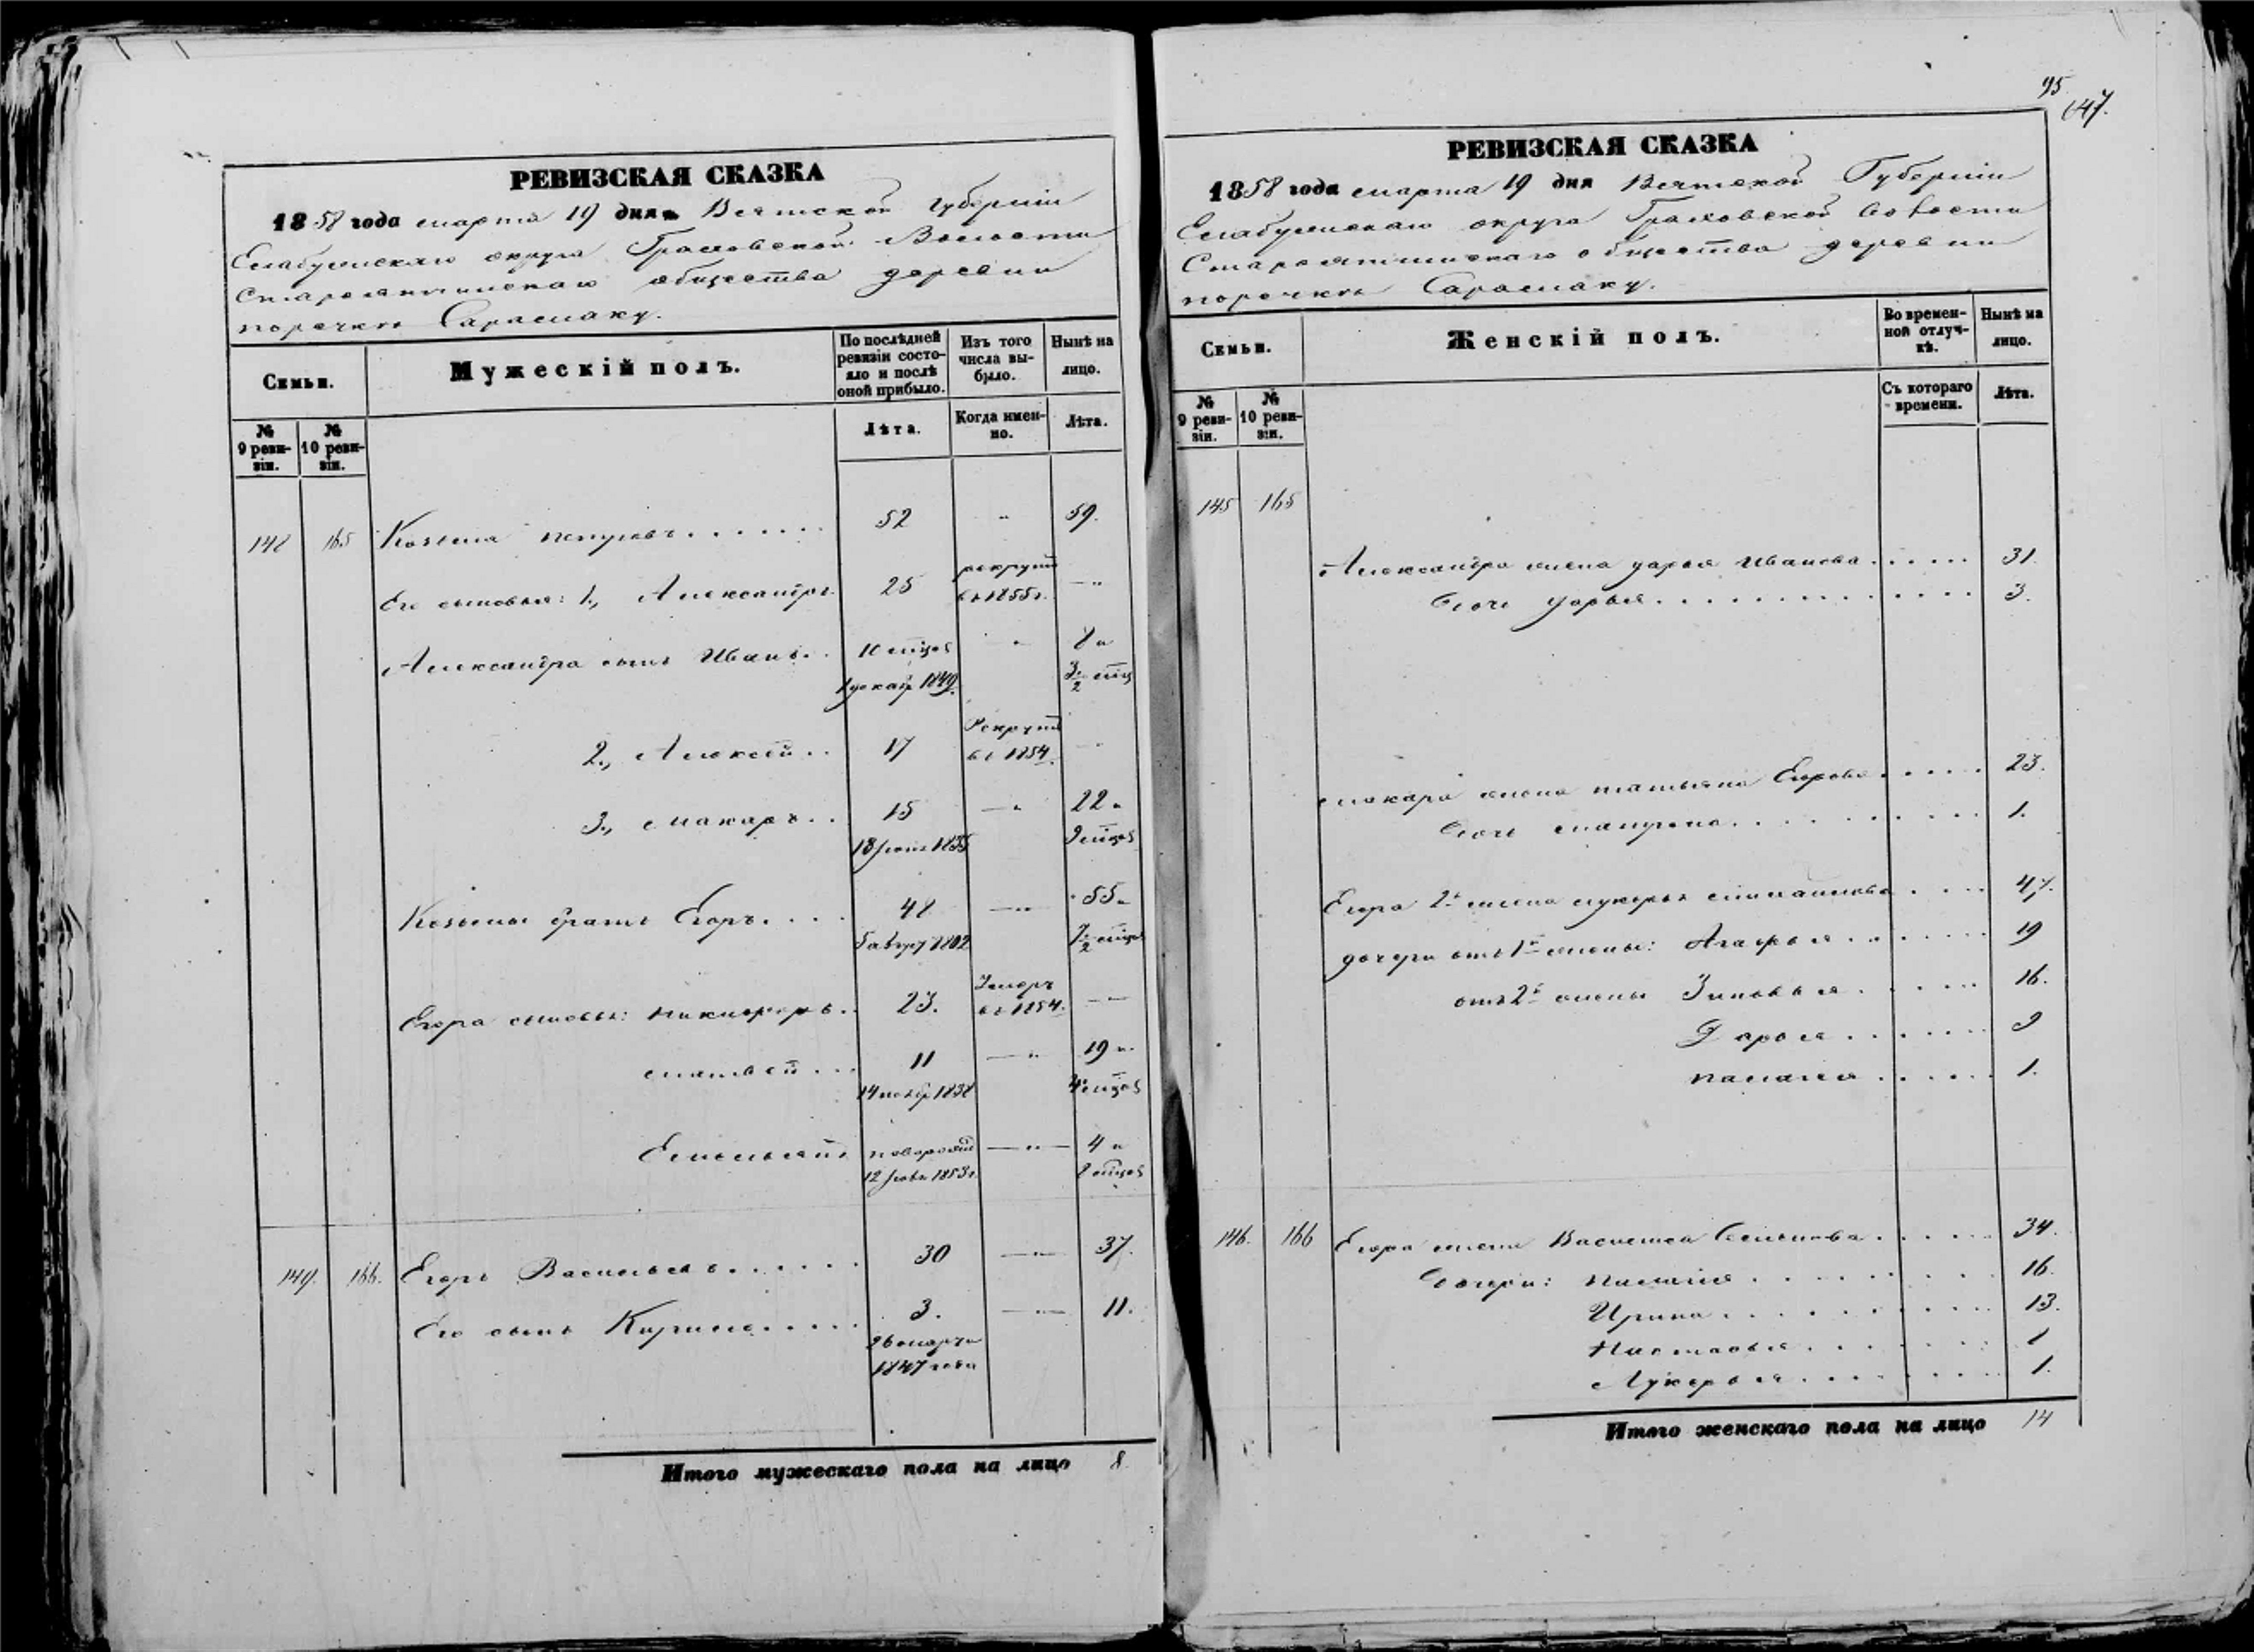 95
147.
РЕВИЗСКАЯ СКАЗКА
1858 года марта 19 дня Вятской Губерніи
Елабужскаго округа Граховской Волости
общества деревни
поречки Сарамаку.
Семьи.
Мужескій полъ.
По послѣдней ревизіи состояло и послѣ оной прибыло.
Изъ того числа выбыло.
Нынѣ на лицо.
№ 9 ревизіи.
№ 10 ревизіи.
Лѣта.
Когда именно.
Лѣта.
148 165 Козьма Петровъ 52 " 59.
Его сыновья: 1., Александръ 25 рекрутъ въ 1855 г. — "
Александра сынъ Иванъ 10 мѣцов " 8 "
1 декаб 1849. 3 1/2 мѣц
2., Алексей 17 Рекрутъ въ 1854. — "
3., Макаръ 15 — " 22 "
18 1835 9 мѣцов
Козьмы братъ Егоръ 48 — " 55 "
5 август 1802 7 1/2 мѣцов
Егора сыновья: Никифоръ 23. Умеръ въ 1854. — "
Матвей 11 — " 19 "
14 нояб 1838 4 мѣцов
Емельянъ новорожд — " — 4 "
12 1853 г. 8 мѣцов
149. 166. Егоръ Васильевъ 30 — " — 37.
Его сынъ Кирило 3. — " — 11.
26 марта
1847 года
Итого мужескаго пола на лицо 8
РЕВИЗСКАЯ СКАЗКА
1858 года марта 19 дня Вятской Губерніи
Елабужскаго округа Граховской Волости
общества деревни
поречки Сарамаку.
Семьи.
Женскій полъ.
Во временной отлучкѣ.
Нынѣ на лицо.
№ 9 ревизіи.
№ 10 ревизіи.
Съ котораго времени.
Лѣта.
145 165
Александра жена Дарья Иванова 31.
дочь Дарья 3.
Макара жена Татьяна Егорова 23.
дочь Матрена 1.
Егора 2я жена Лукерья 47.
дочери отъ 1й жены: Агафья 19
отъ 2й жены Зиновья 16.
Дарья 9
Палагея 1.
146. 166 Егора жена Василиса Семенова 34.
дочери: 16.
Ирина 13.
Настасья 1
Лукерья 1.
Итого женскаго пола на лицо 14